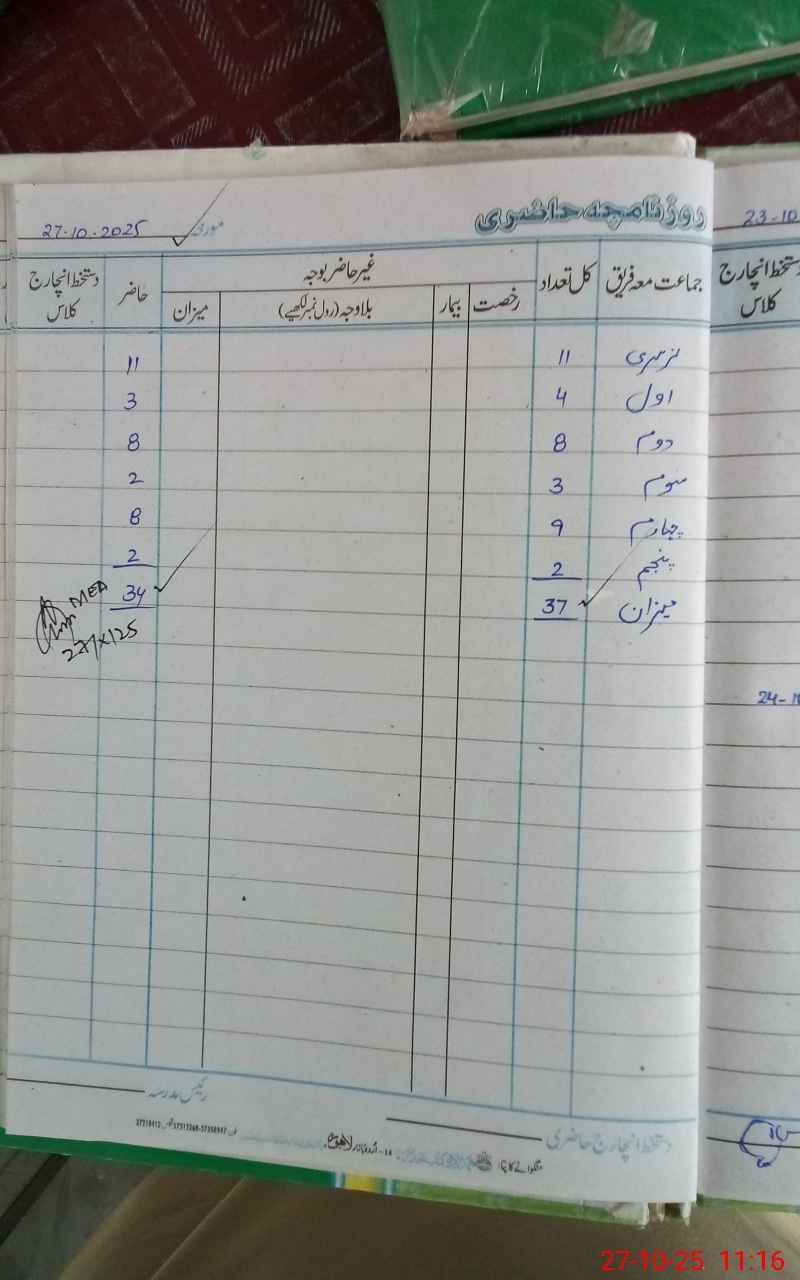 روزنامچہ حاضری
مورخہ 27-10-2025
جماعت معہ فریق کل تعداد غیر حاضر بوجہ حاضر دستخط انچارج کلاس
رخصت بیمار بلاوجہ (رول نمبر لکھیے) میزان
نرسری 11 11
اول 4 3
دوم 8 8
سوم 3 2
چہارم 9 8
پنجم 2 2
میزان 37 34
MEA
27/x/25
دستخط انچارج حاضری
رئیس مدرسہ
منگوانے کا پتا
14-اُردو بازار لاہور
23-10
دستخط انچارج
کلاس
24-10
27-10-25 11:16